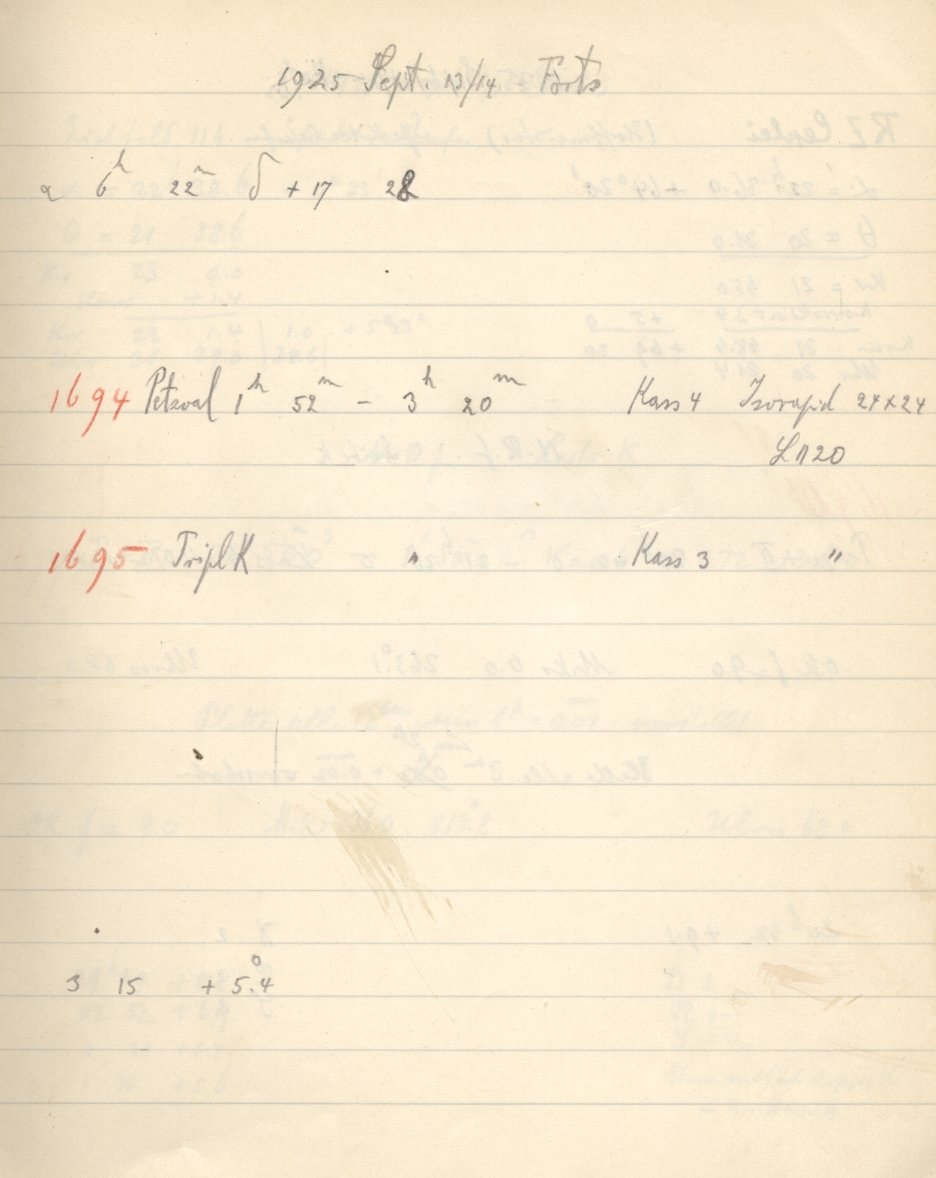 1925 Sept. 13/14 - Forts
α 6h 22m δ +17 28
1694 Petzval 1h 52m - 3h 20m Kass 4 Isorapid 24x24
1120
1695 Tripl K " Kass 3 "
3 15 + 5.4°